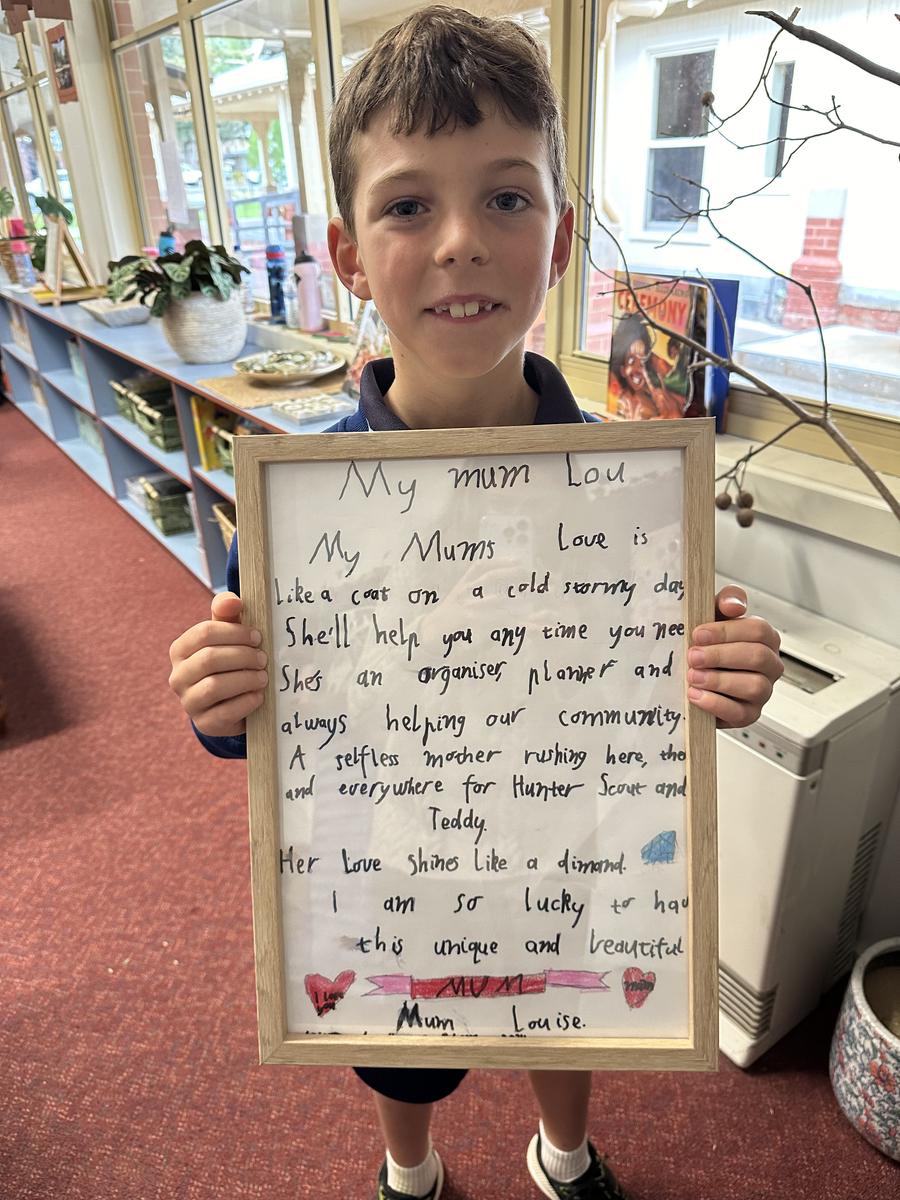 CEREMONY
My mum Lou
My Mums Love is
Like a coat on a cold stormy day
She'll help you any time you nee
She's an organiser, planner and
always helping our community.
A selfless mother rushing here, the
and everywhere for Hunter Scout and
Teddy.
Her Love Shines Like a dimand.
I am so lucky to hav
this unique and beautiful
I Love you
MUM
mum
Mum Louise.